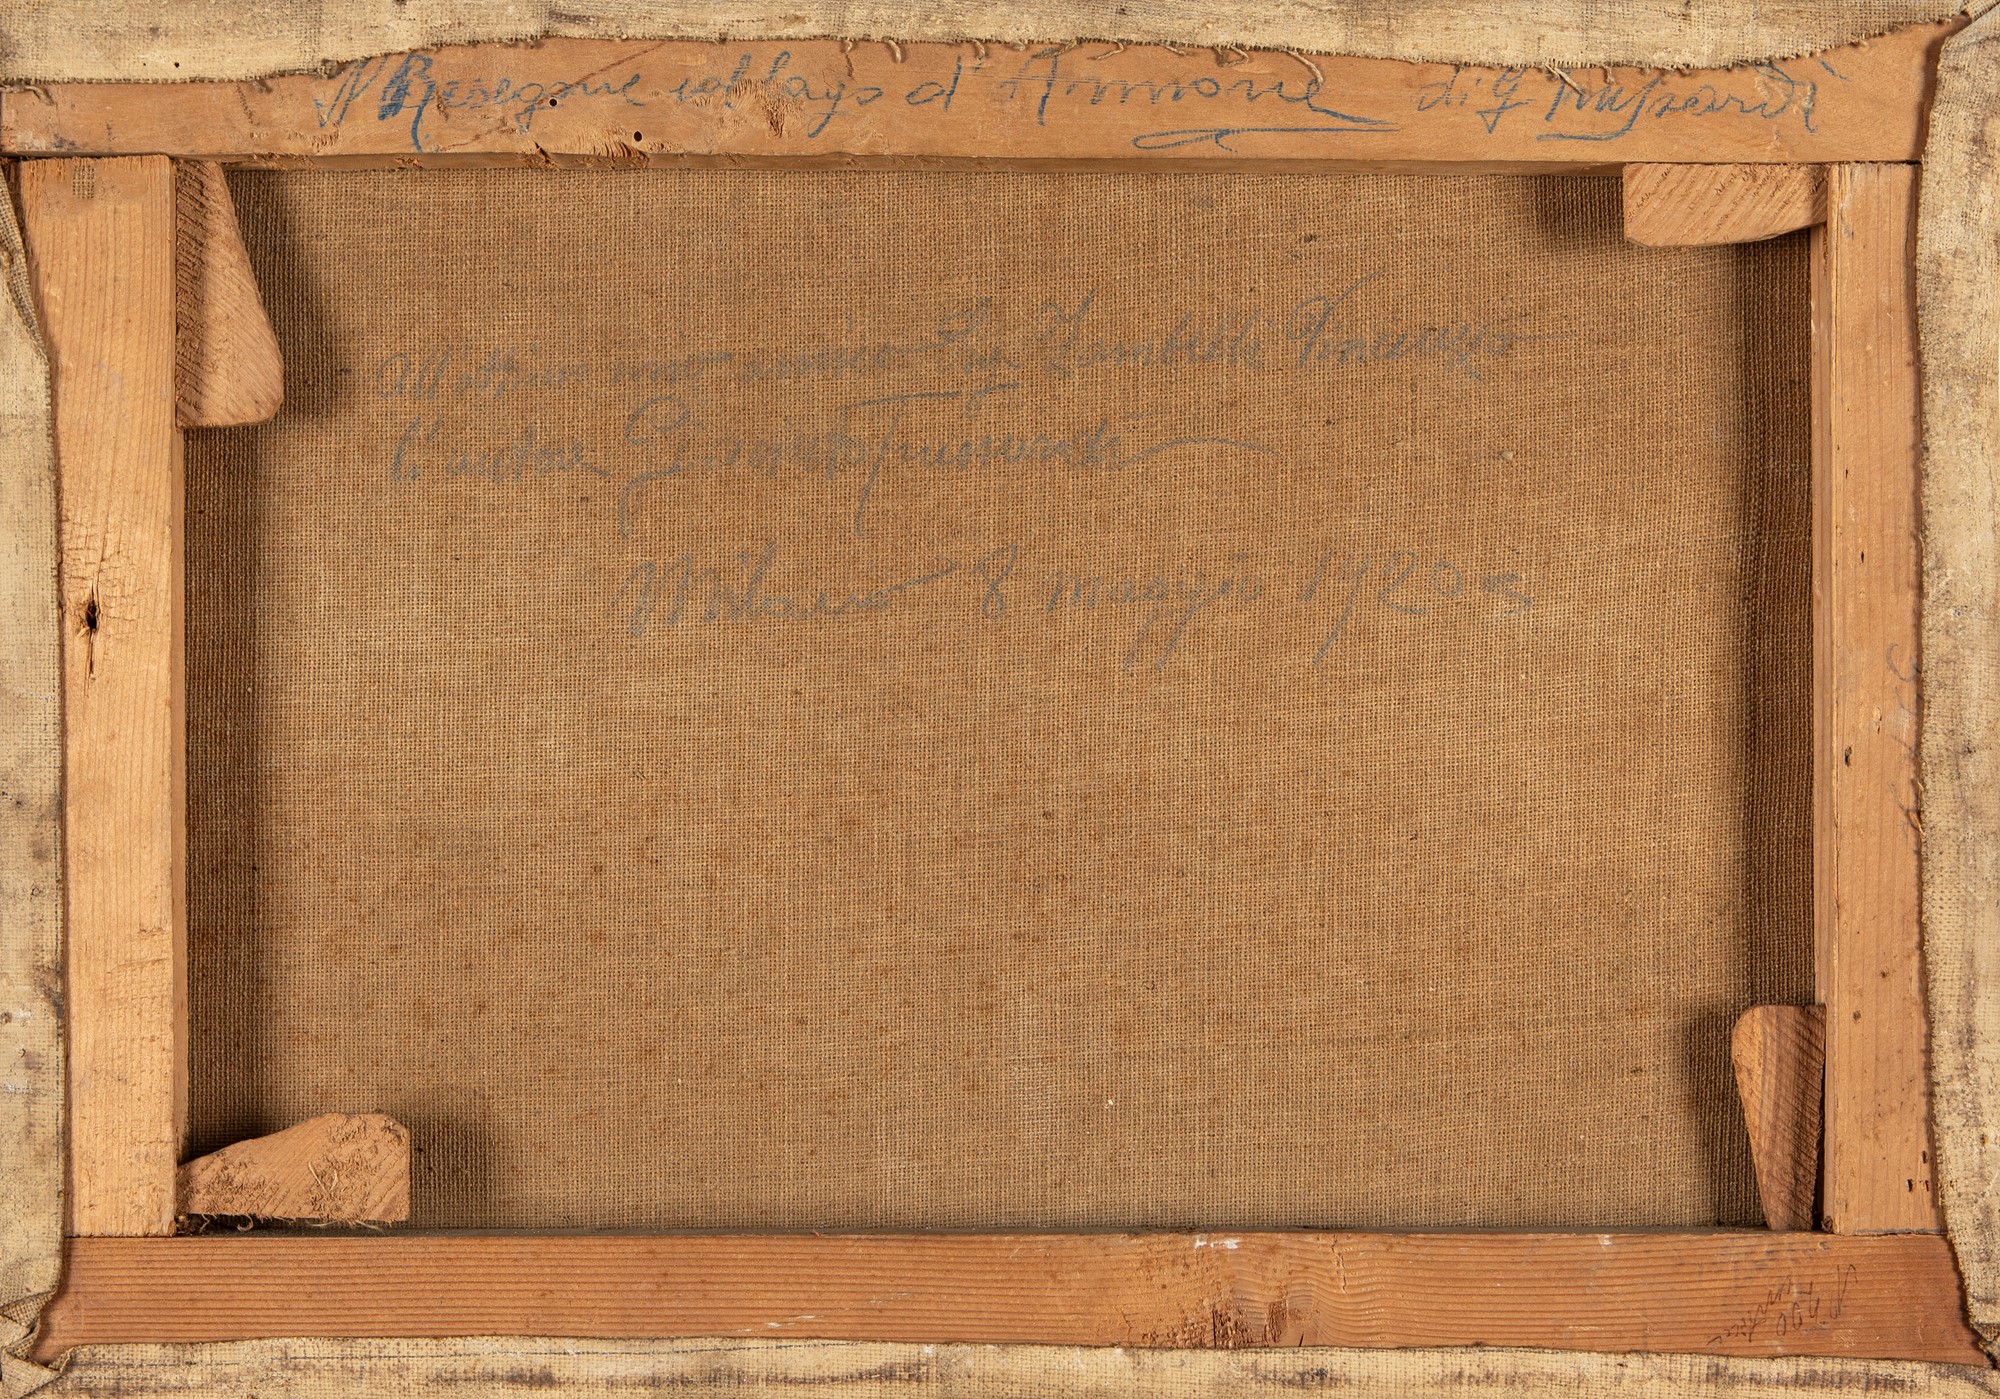 Il Resegone col lago d'Annone di G Trussardi
All'ottimo mio amico Sig Zambelli Vincenzo
l'autore Giovanni Trussardi
Milano 8 maggio 1920